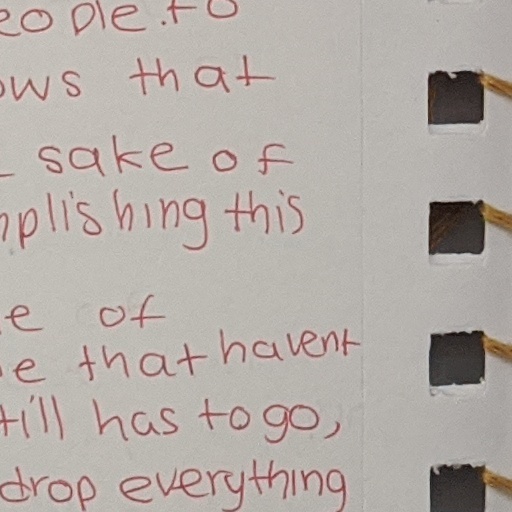 eople to
ows that
sake of
mplishing this
e of
e that havent
till has to go,
drop everything